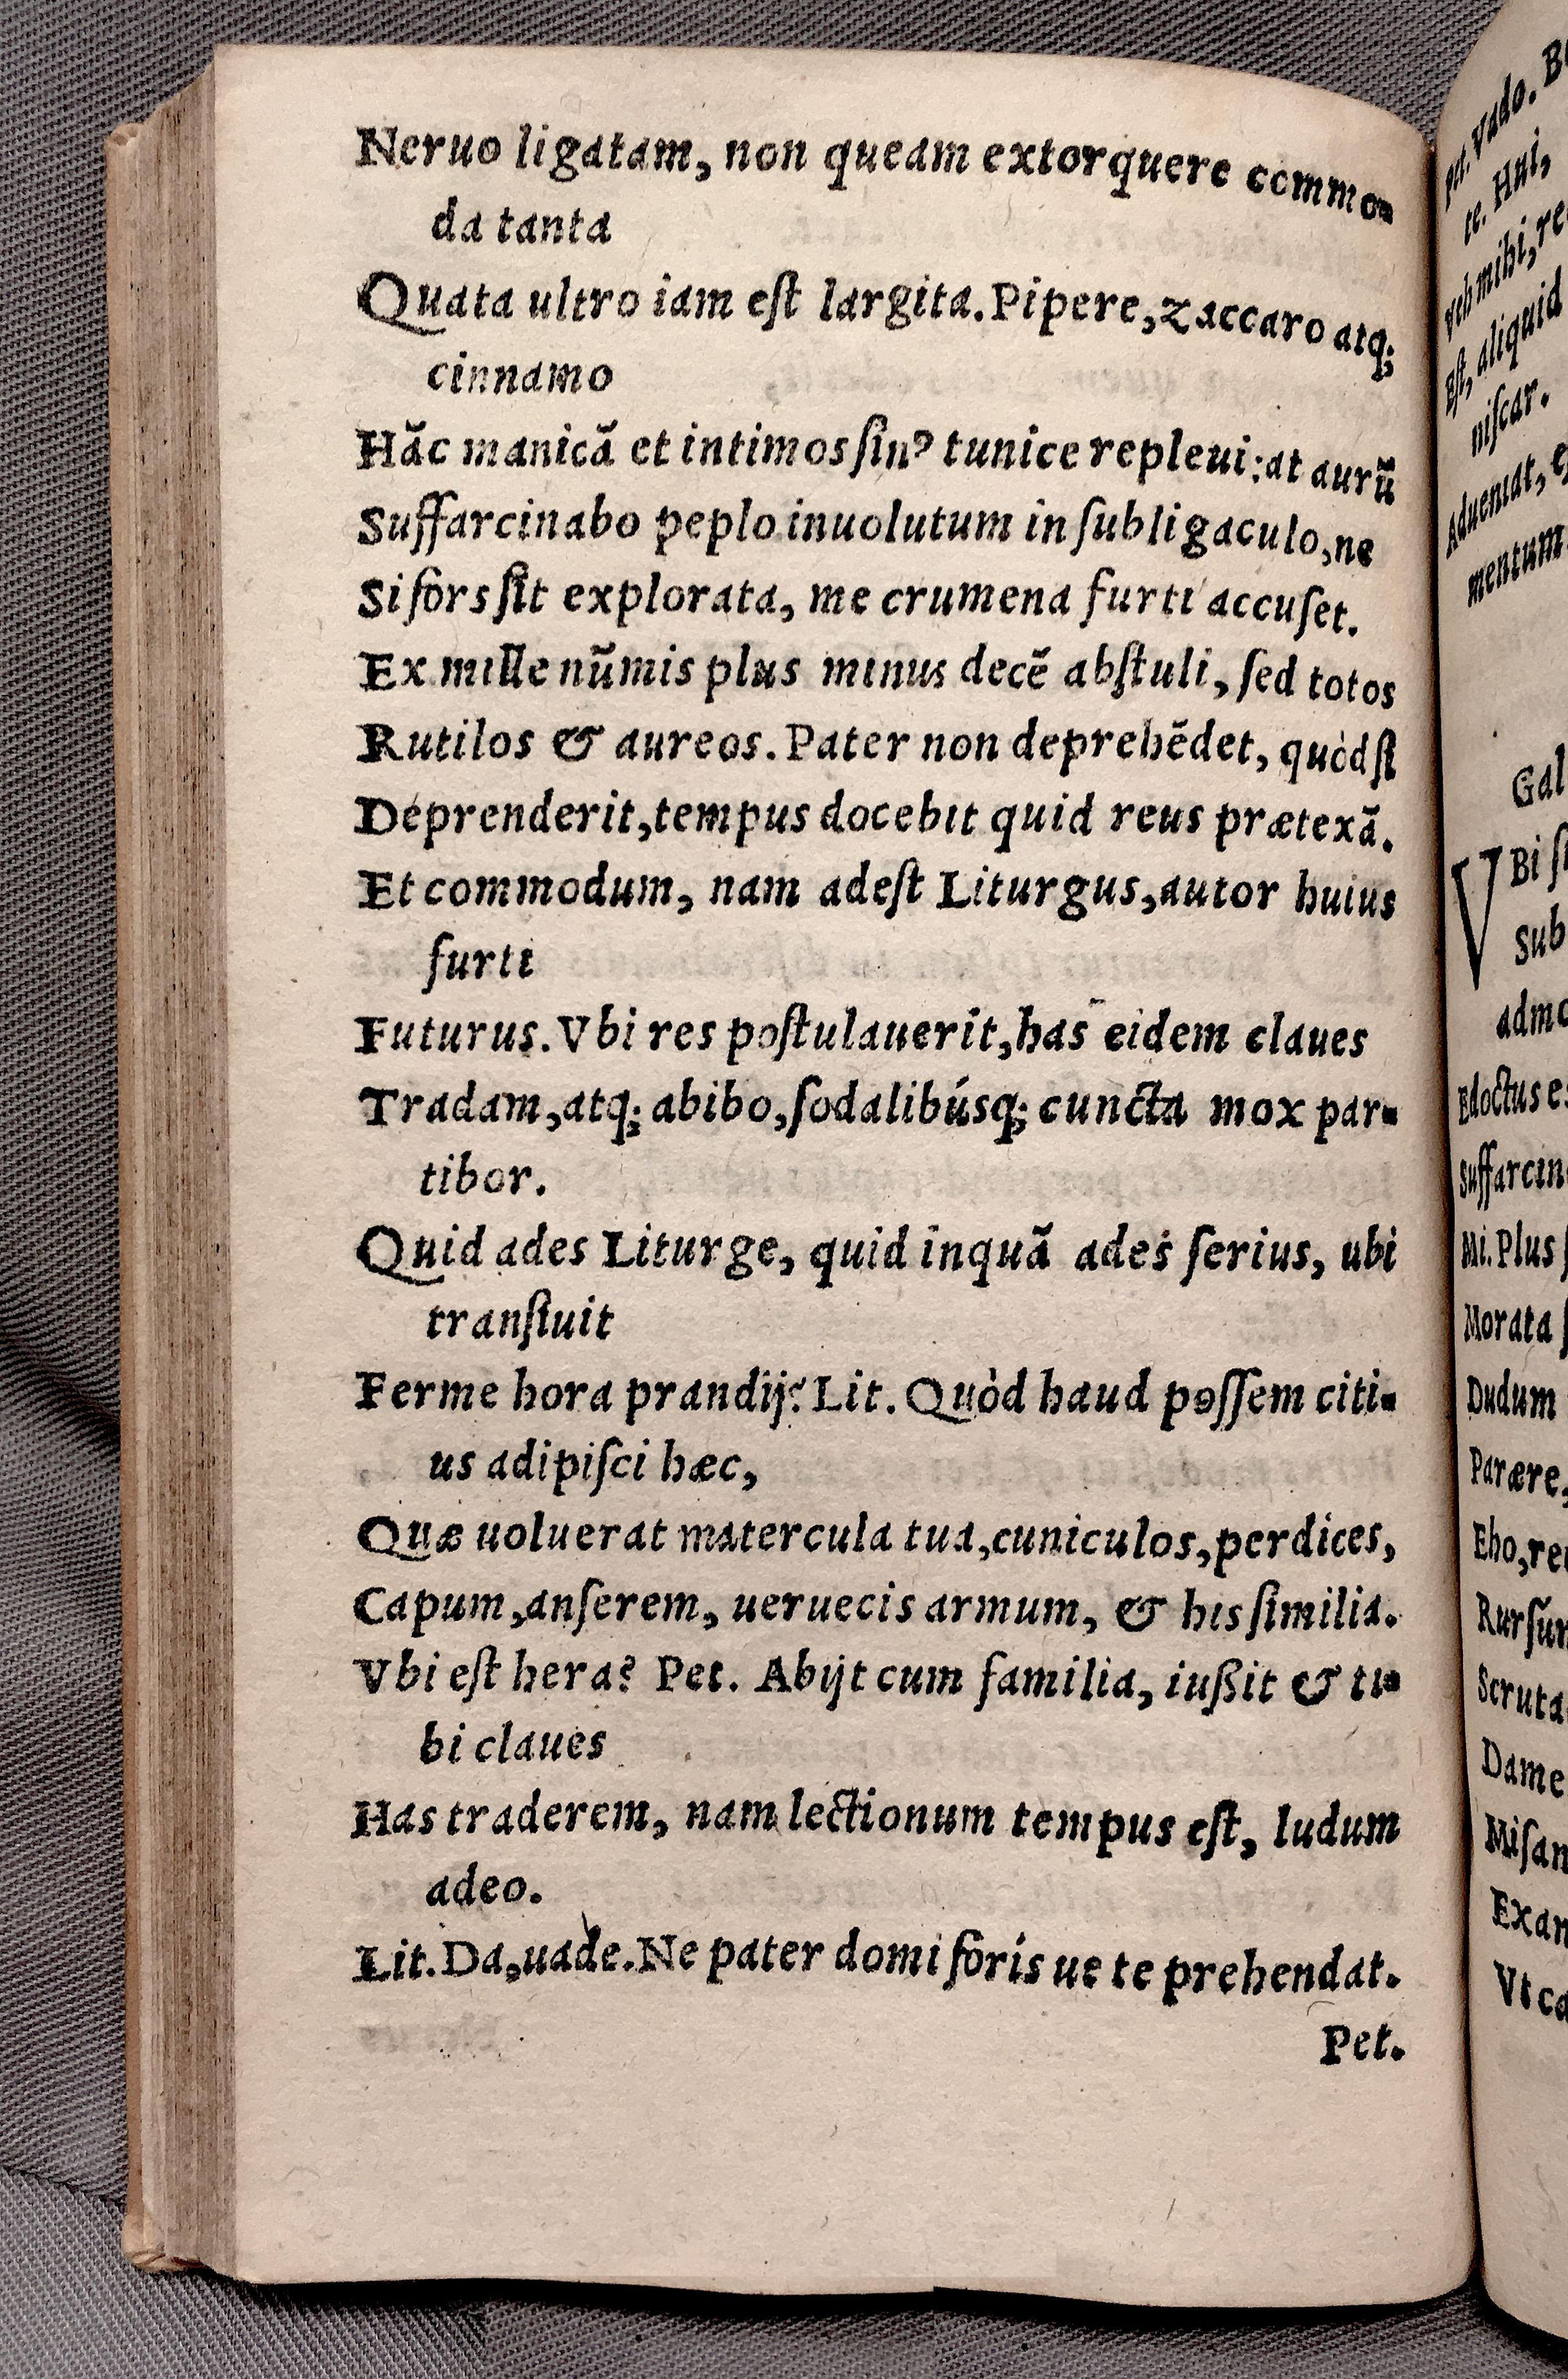 Neruo ligatam, non queam extorquere commo-
da tanta
Quata ultro iam eſt largita. Pipere, zaccaro atq;
cinnamo
Hãc manicã et intimos ſinꝰ tunice repleui: at aurũ
Suffarcinabo peplo inuolutum in ſubligaculo, ne
Si fors ſit explorata, me crumena furti accuſet.
Ex mille nũmis plus minus decẽ abſtuli, ſed totos
Rutilos & aureos. Pater non deprehẽdet, quòd ſi
Deprenderit, tempus docebit quid reus prætexã.
Et commodum, nam adeſt Liturgus, autor huius
furti
Futurus. Vbi res poſtulauerit, has eidem claues
Tradam, atq; abibo, ſodalibúsq; cuncta mox par-
tibor.
Quid ades Liturge, quid inquã ades ſerius, ubi
tranſiuit
Ferme hora prandij? Lit. Quòd haud poſſem citi-
us adipiſci hæc,
Quæ uoluerat matercula tua, cuniculos, perdices,
Capum, anſerem, ueruecis armum, & his ſimilia.
Vbi eſt hera? Pet. Abijt cum familia, iußit & ti-
bi claues
Has traderem, nam lectionum tempus eſt, ludum
adeo.
Lit. Da, uade. Ne pater domi foris ue te prehendat.
Pet.
Pet. Vado.
te. Hui,
Veh mihi, re
Eſt, aliquid
niſcar.
Adueniat,
mentum
Gal
VBi
Sub
admo
Edoctus
Suffarcin
Mi. Plus
Morata
Dudum
Paræere,
Eho,
Rurſum
Scruta
Dame
Miſan
Exan
Vt